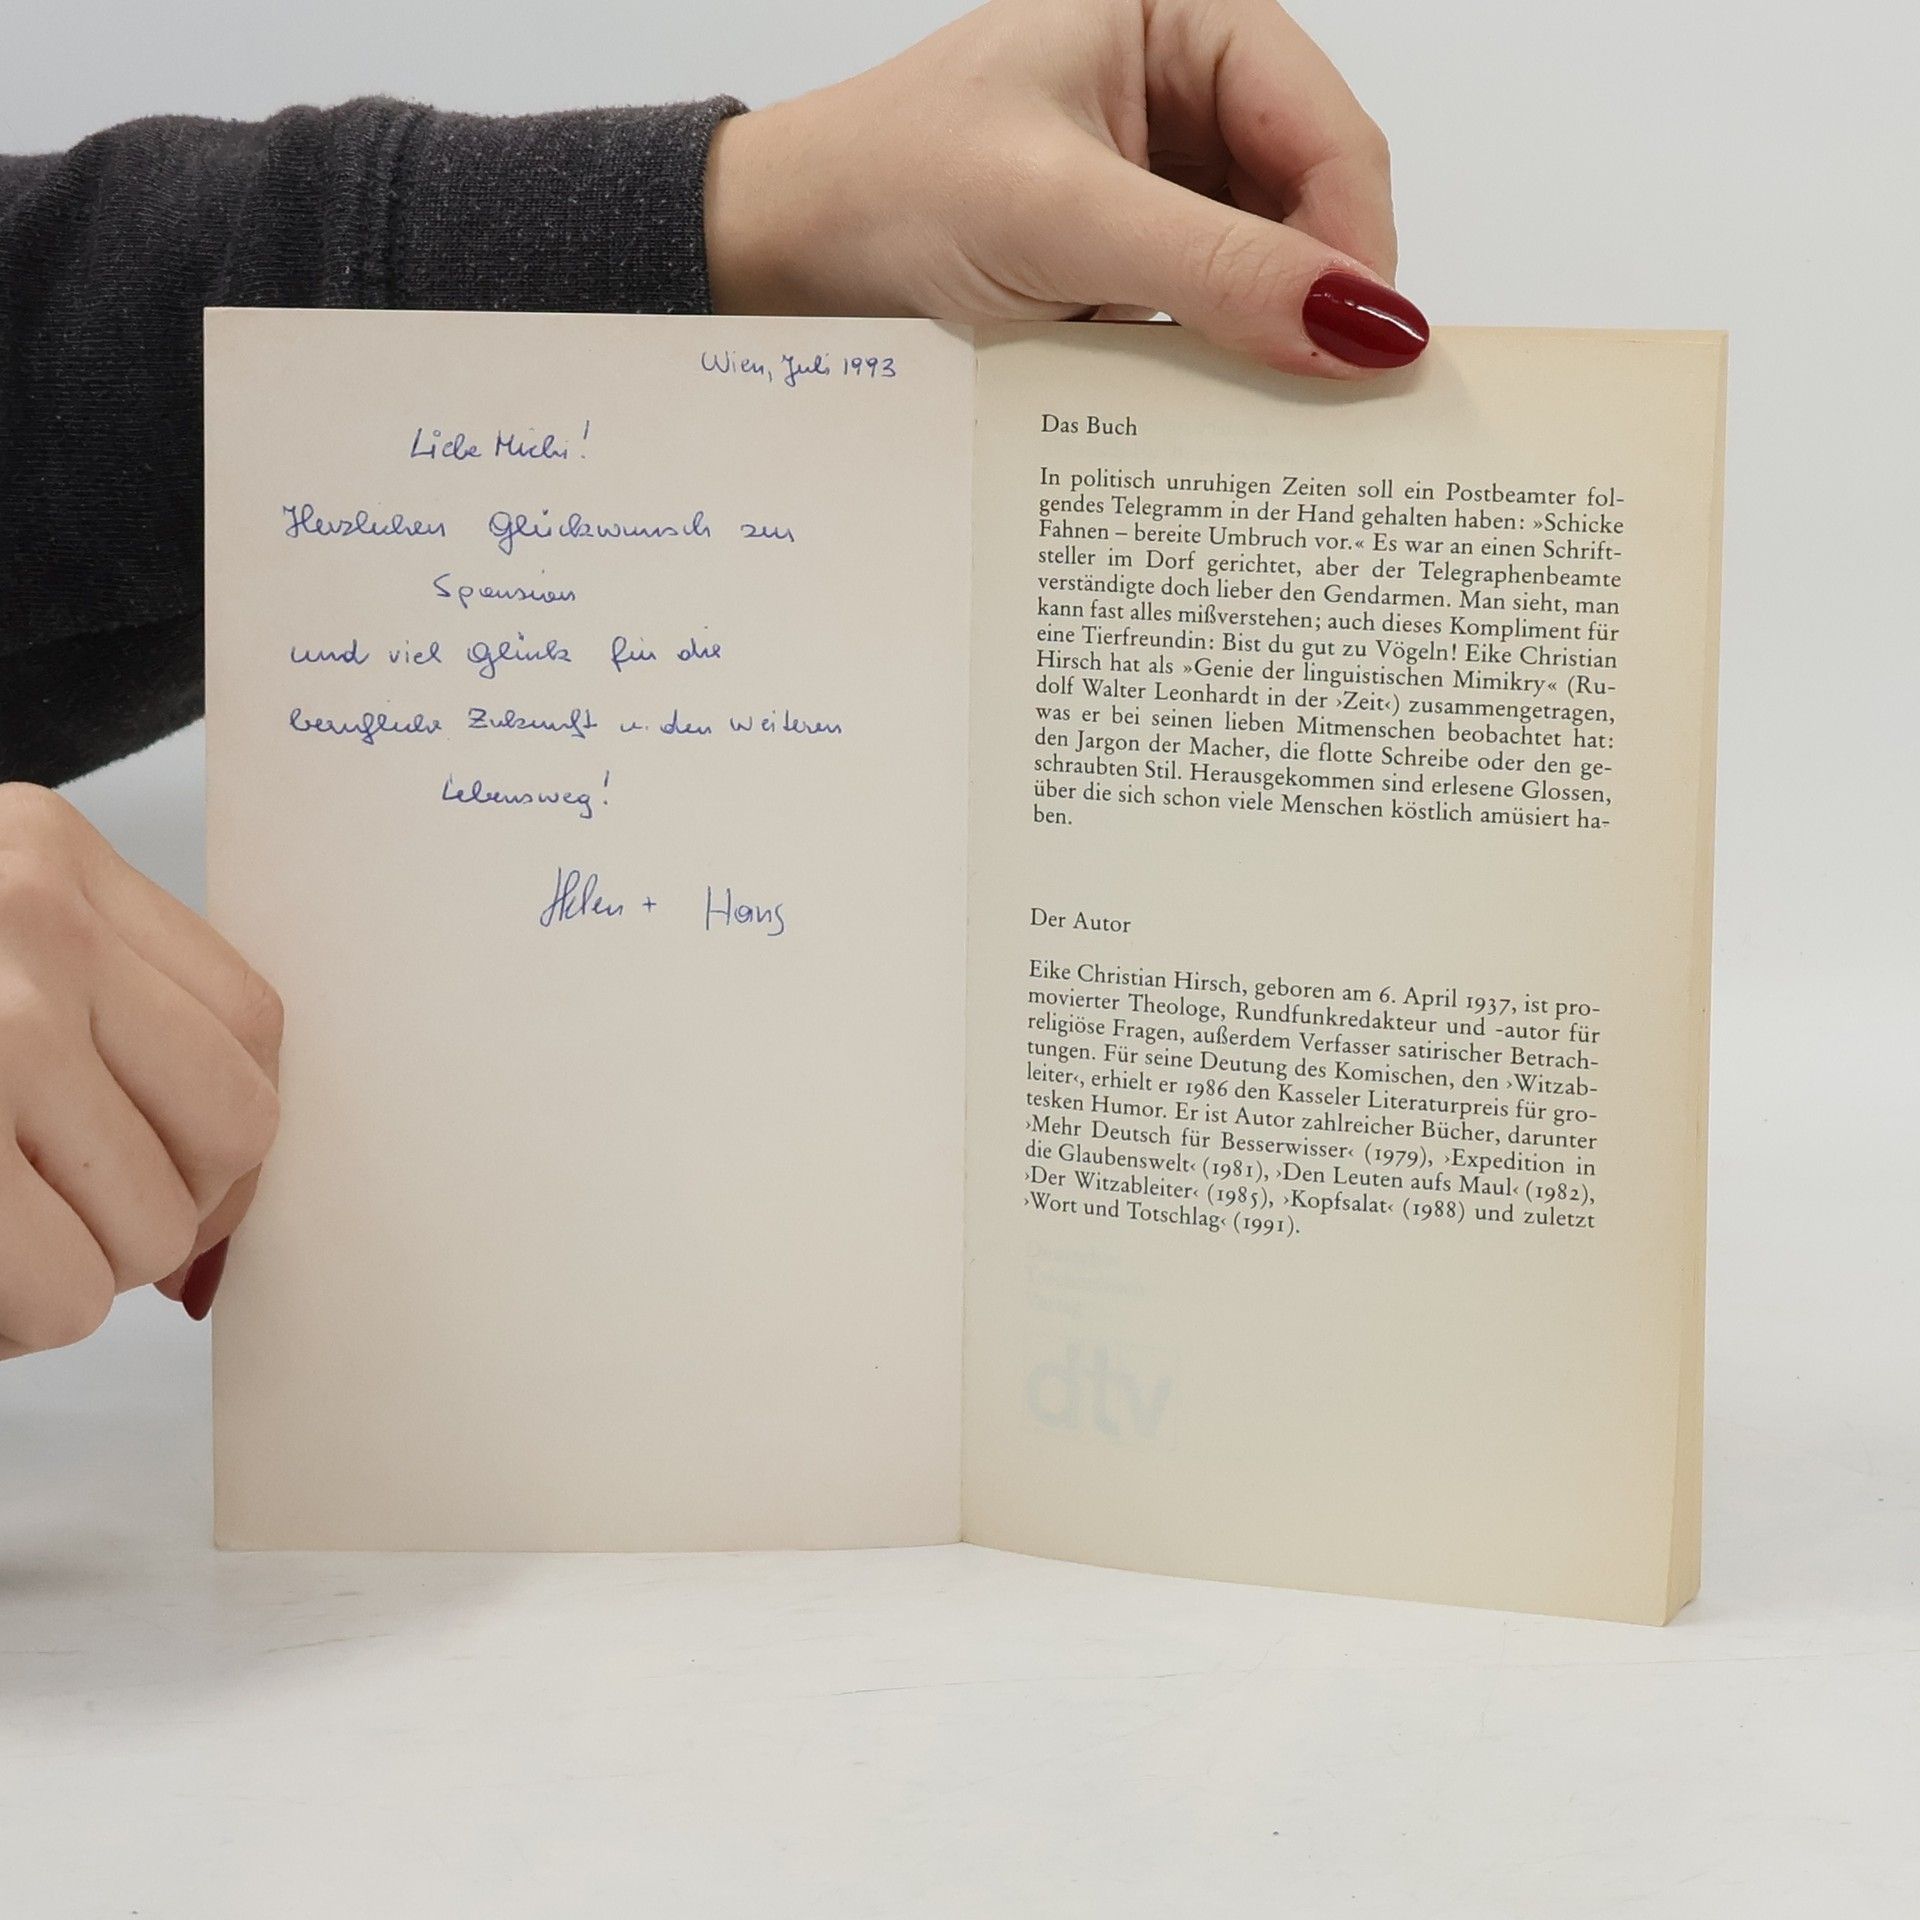 Wien, Juli 1993
Liebe Michi!
Herzlichen Glückwunsch zur
Sponsion
und viel Glück für die
berufliche Zukunft u. den weiteren
Lebensweg!
Helen + Hans
Das Buch
In politisch unruhigen Zeiten soll ein Postbeamter fol-
gendes Telegramm in der Hand gehalten haben: »Schicke
Fahnen – bereite Umbruch vor.« Es war an einen Schrift-
steller im Dorf gerichtet, aber der Telegraphenbeamte
verständigte doch lieber den Gendarmen. Man sieht, man
kann fast alles mißverstehen; auch dieses Kompliment für
eine Tierfreundin: Bist du gut zu Vögeln! Eike Christian
Hirsch hat als »Genie der linguistischen Mimikry« (Ru-
dolf Walter Leonhardt in der ›Zeit‹) zusammengetragen,
was er bei seinen lieben Mitmenschen beobachtet hat:
den Jargon der Macher, die flotte Schreibe oder den ge-
schraubten Stil. Herausgekommen sind erlesene Glossen,
über die sich schon viele Menschen köstlich amüsiert ha-
ben.
Der Autor
Eike Christian Hirsch, geboren am 6. April 1937, ist pro-
movierter Theologe, Rundfunkredakteur und -autor für
religiöse Fragen, außerdem Verfasser satirischer Betrach-
tungen. Für seine Deutung des Komischen, den ›Witzab-
leiter‹, erhielt er 1986 den Kasseler Literaturpreis für gro-
tesken Humor. Er ist Autor zahlreicher Bücher, darunter
›Mehr Deutsch für Besserwisser‹ (1979), ›Expedition in
die Glaubenswelt‹ (1981), ›Den Leuten aufs Maul‹ (1982),
›Der Witzableiter‹ (1985), ›Kopfsalat‹ (1988) und zuletzt
›Wort und Totschlag‹ (1991).
dtv